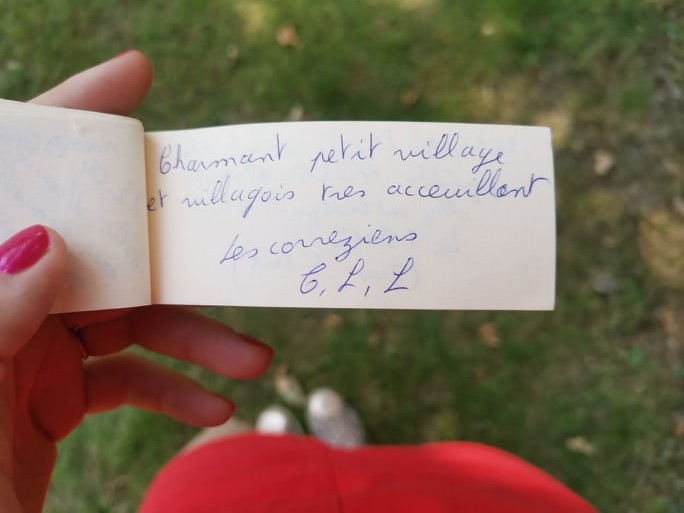 Charmant petit village
et villagois tres acceuillant
Les correziens
C, L, L